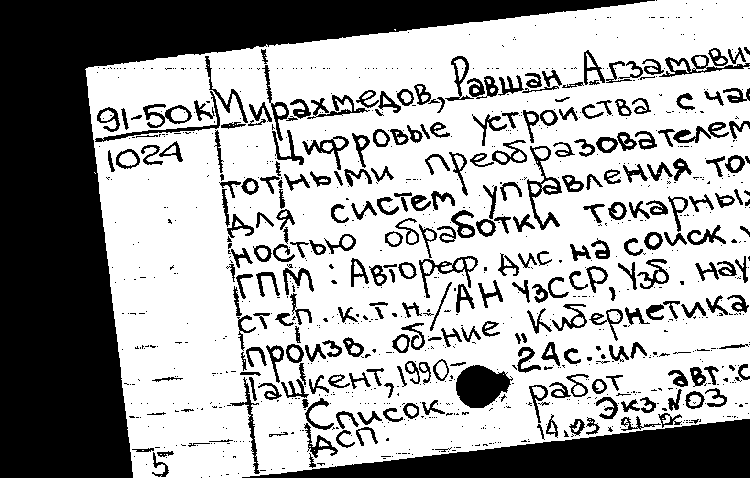 91-50к Мирахмедов, Равшан Агзамович
1024 Цифровые устройства с час
тотными преобразователем
для систем управления точ
ностью обработки токарных
ГПМ : Автореф. дис. на соиск. у
степ. к.т.н. / АН УзССР, Узб. нау
произв. об-ние „Кибернетика
Ташкент, 1990.- 24с.:ил.
Список работ авт.:с
дсп. Экз. №03
4.03.91
5